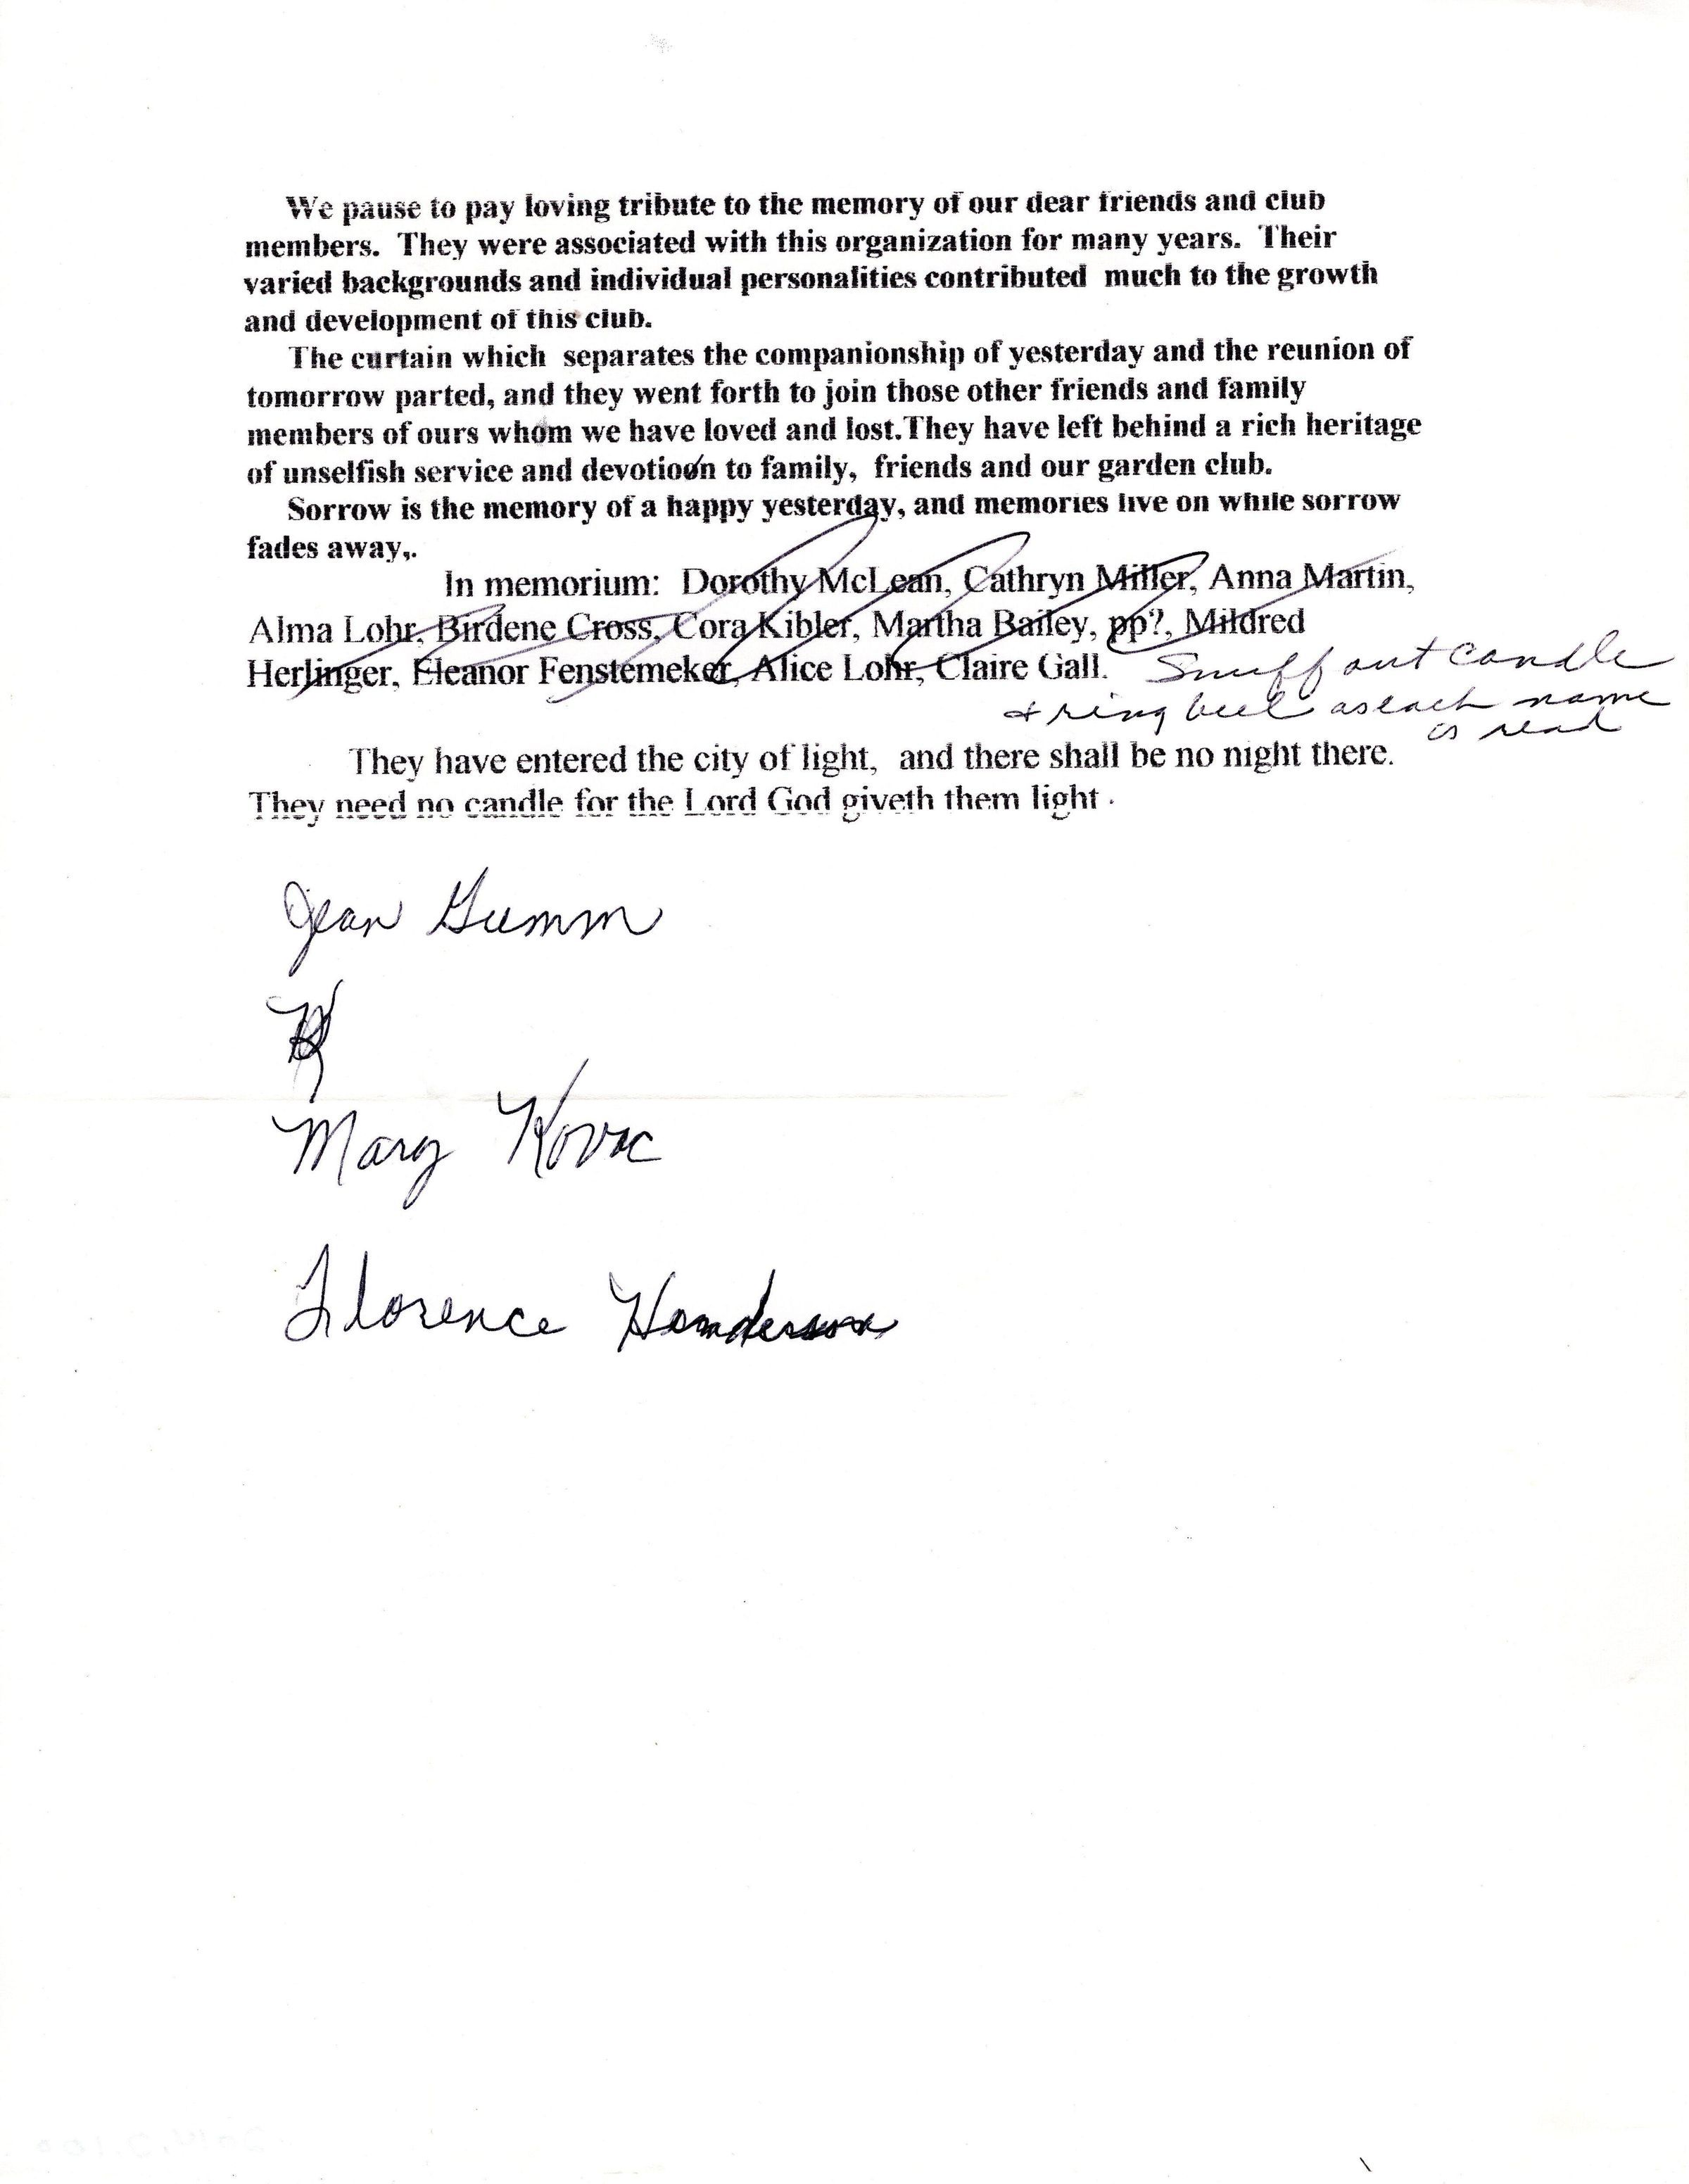 We pause to pay loving tribute to the memory of our dear friends and club
members. They were associated with this organization for many years. Their
varied backgrounds and individual personalities contributed much to the growth
and development of this club.
The curtain which separates the companionship of yesterday and the reunion of
tomorrow parted, and they went forth to join those other friends and family
members of ours whom we have loved and lost.They have left behind a rich heritage
of unselfish service and devotioon to family, friends and our garden club.
Sorrow is the memory of a happy yesterday, and memories live on while sorrow
fades away,.
In memorium: Dorothy McLean, Cathryn Miller, Anna Martin,
Alma Lohr, Birdene Cross, Cora Kibler, Martha Bailey, pp?, Mildred
Herlinger, Eleanor Fenstemeker, Alice Lohr, Claire Gall. Snuff out candle
+ ring bell as each name
is read
They have entered the city of light, and there shall be no night there.
They need no candle for the Lord God giveth them light.
Jean Gumm
Mary Kovac
Florence Henderson